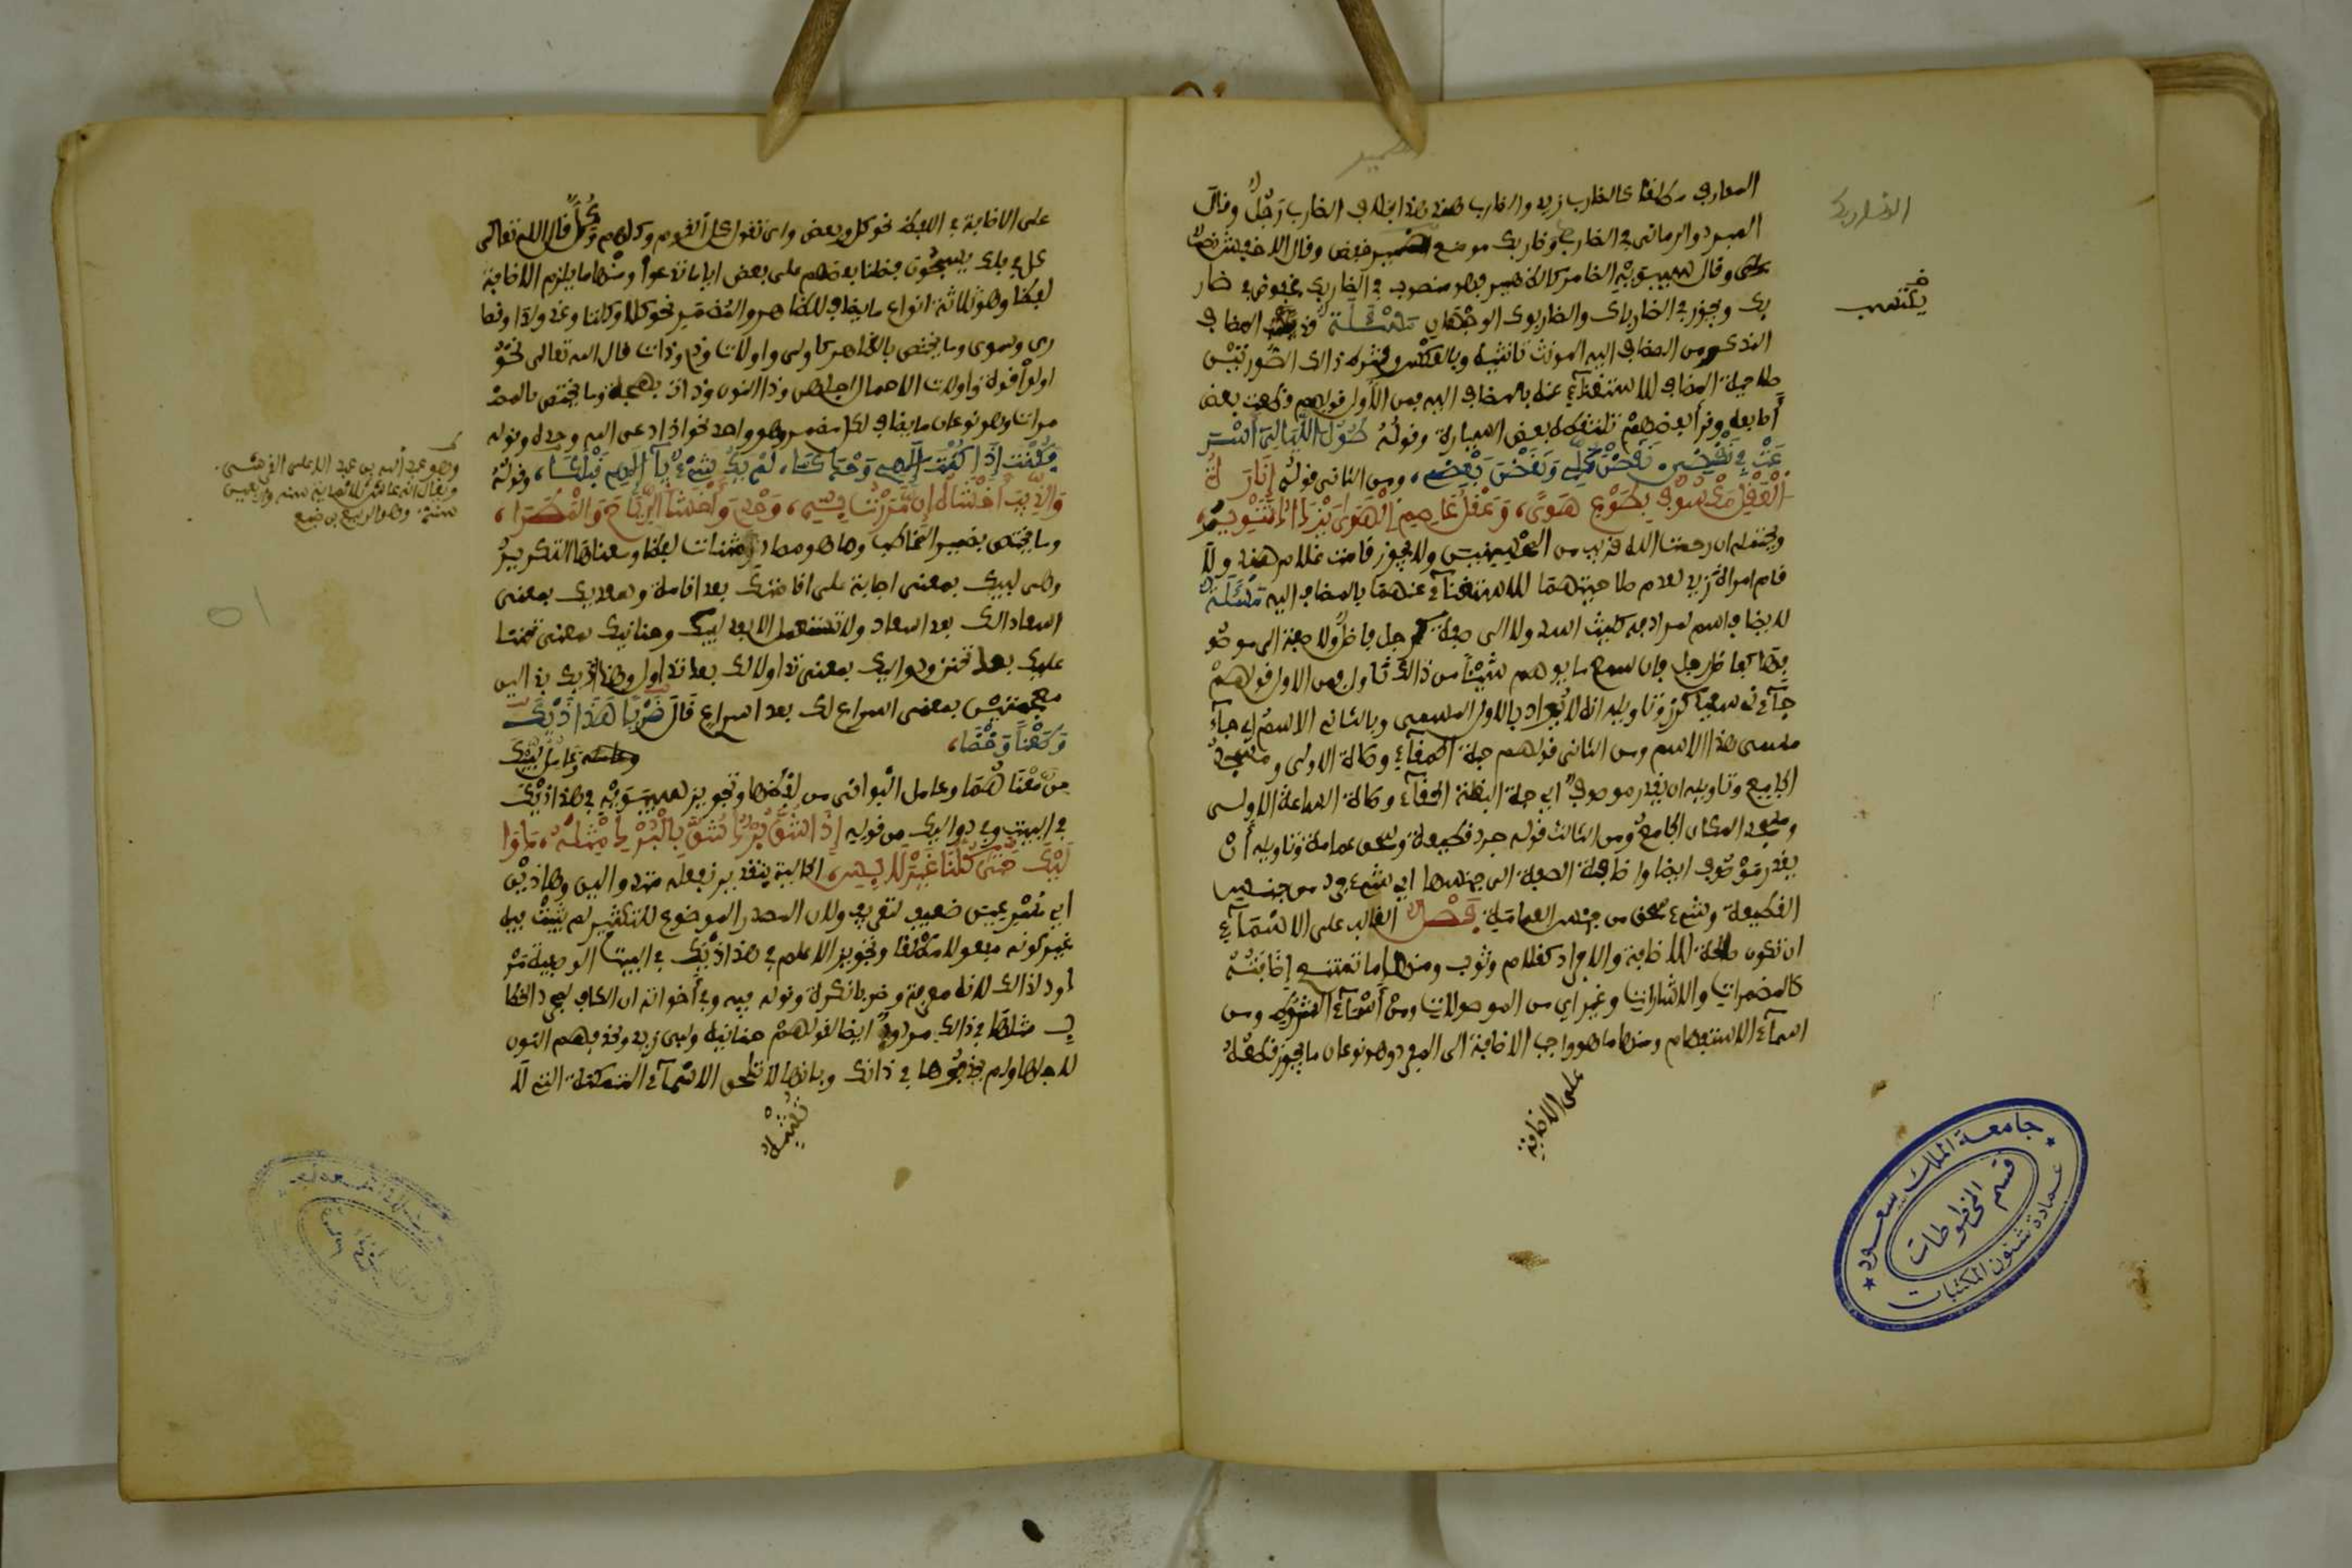 المعارف مطلقا كالضارب زيد والضارب هذا بخلاف الضارب رجل وقال
المبرد والرماني في الضاربك وضاربك موضع الضمير خفض وقال الاخفش نصب
وقال سيبويه الضامر كالظاهر فهو منصوب في الضاربك مخفوض في ضار
بك ويجوز في الضارباك والضاربوك الوجهان مسئلة قد يكتسب المضاف
المذكر من المضاف اليه المونث تانيثه وبالعكس وشرط ذالك الصورتين
صلاحية المضاف للاستغناء عنه بالمضاف اليه فمن الأول قولهم قطعت بعض
أصابعه وقرأ بعضهم تلتقطه بعض السيارة وقوله طول الليالي أسر
عت في نقضي نقضن كلي ونقضن بعضي ومن الثاني قوله إنارة
العقل مكسوف بطوع هوى وعقل عاصي الهوى يزداد تنويرا
ويحتمله ان رحمت الله قريب من المحسنين ولا يجوز قامت غلام هند ولا
قام امرأة زيد لعدم صلاحيتهما للاستغناء عنهما بالمضاف اليه مسئلة
لا يضاف اسم لمرادفه كليث اسد ولا الى صفة كرجل فاضل ولا صفة الى موصو
فها كفاضل رجل فان سمع ما يوهم شيئا من ذالك تأول فمن الاول قولهم
جآءني سعيد كرز وتاويله ان يراد بالاول المسمى وبالثاني الاسم أي جآء
مسمى هذا الاسم ومن الثاني قولهم حبة الحمقآء وصلاة الاولى ومسجد
الجامع وتاويله ان يقدر موصوف أي حبة البقلة الحمقآء وصلاة الساعة الاولى
ومسجد المكان الجامع ومن الثالث قولهم جرد قطيفة وسحق عمامة وتاويله أن
يقدر موصوف ايضا واضافة الصفة الى جنسها أي شيء جرد من جنس
القطيفة وشيء سحق من جنس العمامة فصل الغالب على الاسمآء
ان تكون صالحة للاضافة والافراد كغلام وثوب ومنها ما تمتنع إضافته
كالمضمرات والاشارات وغير أي من الموصولات ومن أسمآء الشرط ومن
اسمآء الاستفهام ومنها ما هو واجب الاضافة الى المفرد وهو نوعان ما يجوز قطعه
على الاضافة
يكتسب
جامعة الملك سعود
قسم المخطوطات
عمادة شئون المكتبات
على الاضافة في اللفظ نحو كل وبعض وأي تقول كل القوم وكلهم وكل قال الله تعالى
كل في فلك يسبحون فضلنا بعضهم على بعض ايا ما تدعوا ومنها ما يلزم الاضافة
لفظا وهو ثلاثة انواع ما يضاف للظاهر والمضمر نحو كلا وكلتا وعند ولدا وقصا
رى وسوى وما يختص بالظاهر كأولى وأولات وذي وذات قال الله تعالى نحن
اولوا قوة واولات الاحمال اجلهن وذا النون وذات بهجة وما يختص بالمضـ
مرات وهو نوعان ما يضاف لكل مضمر وهو وحد نحو اذا دعي الله وحده وقوله
وكنت إذ كنت الهي وحدكا لم يك شيء يا الهي قبلكا وقوله
والذيب أخشاه إن مررت به وحدي وأخشى الرياح والمطرا
وما يختص بضمير المخاطب وهو مصادر مثنات لفظا ومعناها التكرير
وهي لبيك بمعنى اجابة على اقامتك بعد اقامة وسعديك بمعنى
اسعادالك بعد اسعاد ولا تستعمل الا بعد لبيك وحنانيك بمعنى تحننا
عليك بعد تحنن ودواليك بمعنى تداولا لك بعد تداول وهذاذيك بذالين
معجمتين بمعنى اسراع لك بعد اسراع قال ضربا هذاذيك
وطعنا وخضا
وعامله وعامل لبيك
من معناهما وعامل البواقي من لفظها وتجويز سيبويه في هذاذيك
في البيت وفي دواليك من قوله إذا شق برد شق بالبرد مثله دوا
ليك حتى كلنا غير لابس الحالية بتقدير نفعله متداولين وهاذين
أي مسرعين ضعيف لتعريفه ولان المصدر الموضوع للتكثير لم يثبت فيه
غير كونه مفعولا مطلقا وتجويز الاعلم في هذاذيك في البيت الوصفية مر
دود لذالك لانه معرفة وضربا نكرة وقوله فيه وفي أخواته ان الكاف لمجرد الخطا
ب مثلها في ذالك مردود ايضا لقولهم حنانيه ولبى زيد وحذفهم النون
لاجلها ولم يحذفوها في ذانك وبانها لا تلحق الاسمآء التي لا
تشبه